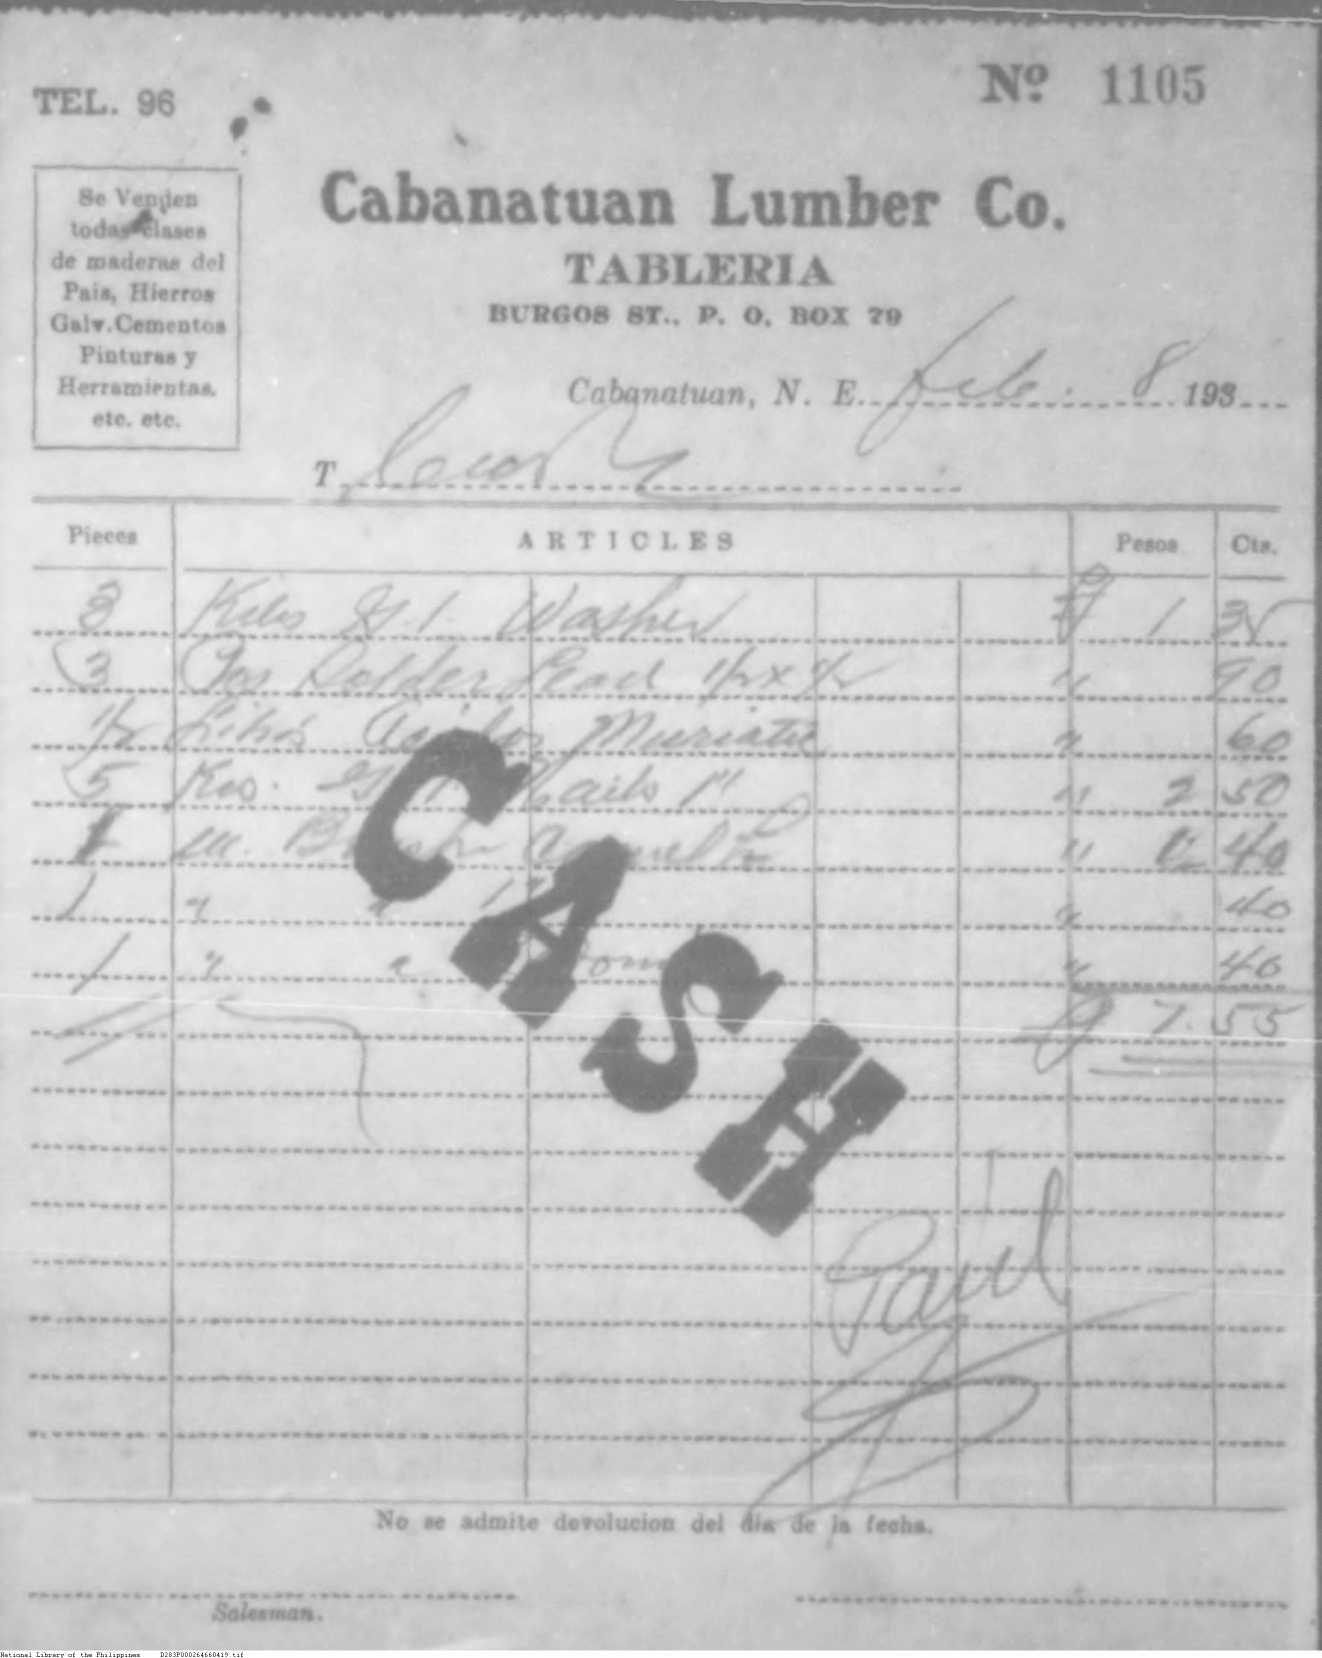 TEL. 96
Nº 1105
Se Venden
todas clases
de maderas del
Pais, Hierros
Galv.Cementos
Pinturas y
Herramientas.
etc. etc.
Cabanatuan Lumber Co.
TABLERIA
BURGOS ST., P. O. BOX 79
Cabanatuan, N. E. Feb. 8 193
T
Pieces ARTICLES Pesos Cts.
3 Kilos G. I. Washer ₱ 1 35
3 Solder Lead 1/2 x 1/2 " 90
1/2 Muriatic " 60
5 Kos. G. I. Nails 1" " 2 50
1 " 1 40
1 " " " 40
1 " " " 40
₱ 7.55
CASH
Paid
No se admite devolucion del dia de la fecha.
Salesman.
National Library of the Philippines D283P000264660419.tif